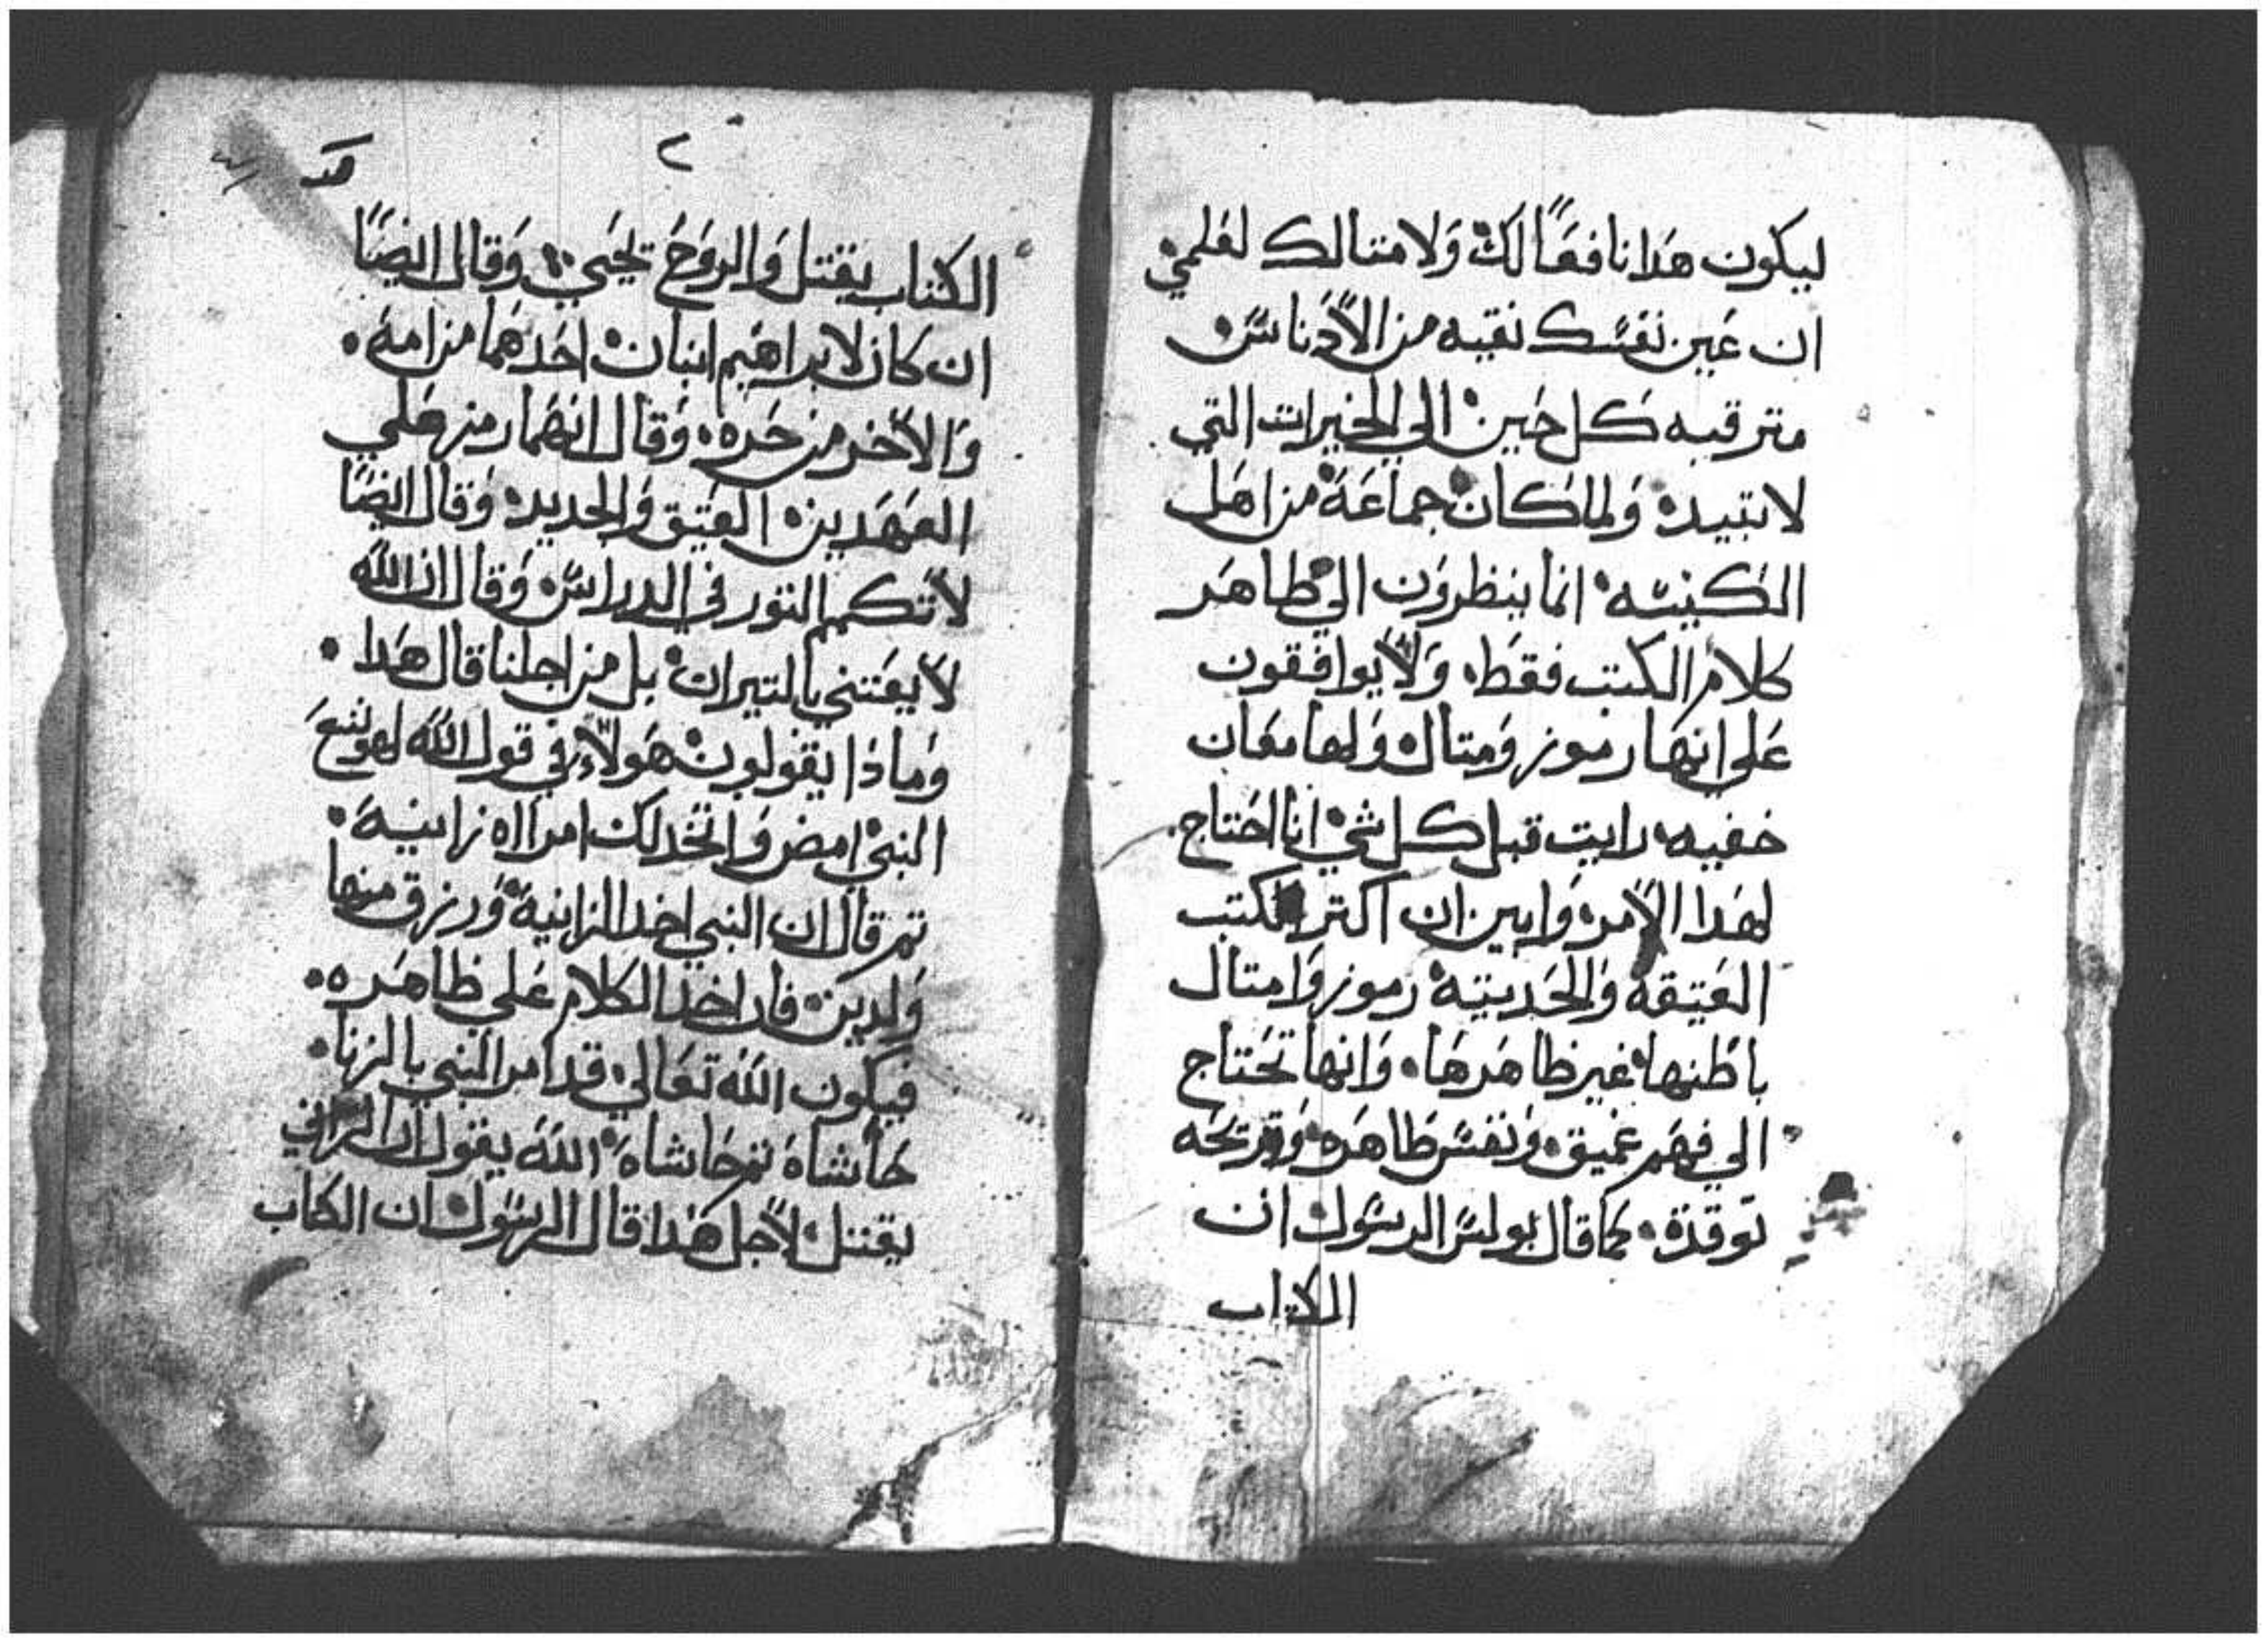 ليكون هدا نافعًا لك ولامتالك لعلمي
ان عين نفسك نقيه من الأدناس
مترقبه كل حين الي الخيرات التي
لا تبيد ولما كان جماعة من اهل
الكنيسه انما ينظرون الي ظاهر
كلام الكتب فقط ولا يوافقون
علي انها رموز ومتال ولها معان
خفيه رايت قبل كل شي انا احتاج
لهدا الأمر وابين ان اكتر الكتب
العتيقة والحديتة رموز وامتال
باطنها غير ظاهرها وانها تحتاج
الي فهم عميق ونفس طاهره وقريحه
توقدة كما قال بولس الرسول ان
الكتاب
٢
الكتاب يقتل والروح تحيي وقال ايضًا
ان كان لابراهيم ابنان احدهما من امة
والأخر من حره وقال انهما رمز علي
العهدين العتيق والحديد وقال ايضًا
لأ تكمم التور في الدراس وقال ان الله
لأ يعتني بالتيران بل من اجلنا قال هدا
وماذا يقولون هولاء في قول الله لهوشع
النبي امض واتخد لك امراه زانية
تم قال ان النبي اخد الزانية ورزق منها
ولدين فان اخد الكلام علي ظاهره
فيكون الله تعالي قد امر النبي بالزنا
حاشاه تم حاشاه الله يقول ان الزاني
يقتل لأجل هدا قال الرسول ان الكتاب